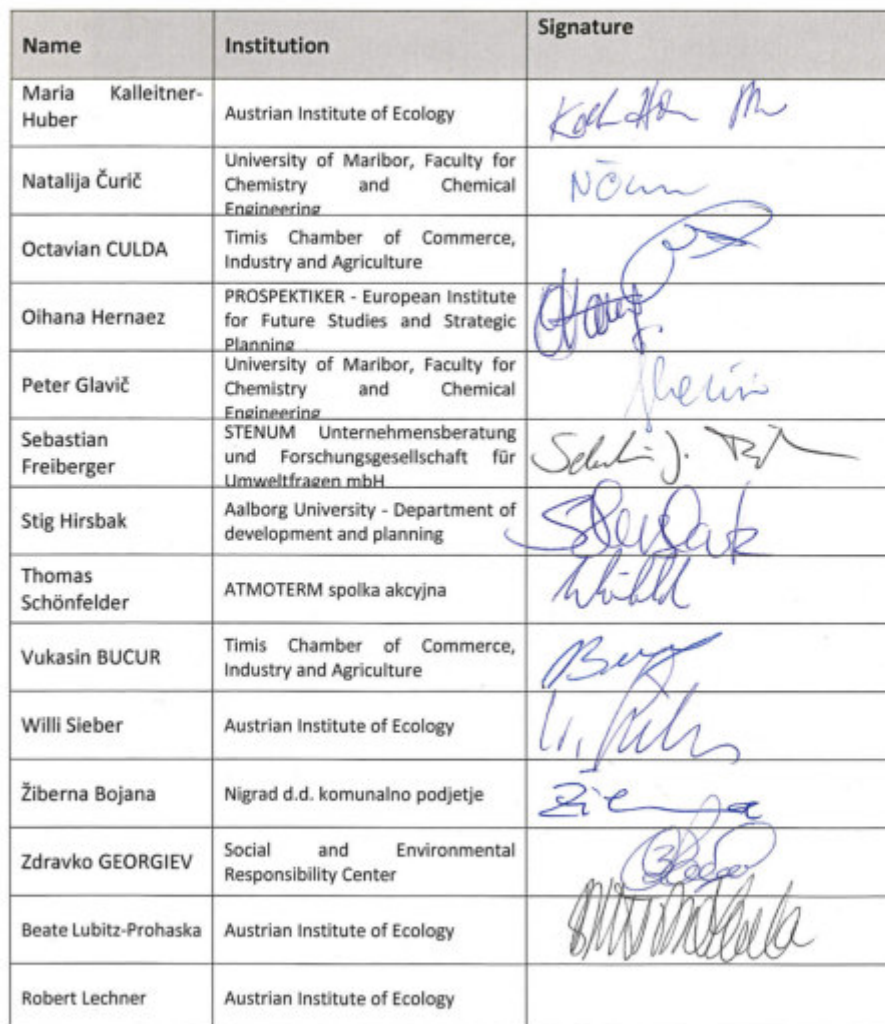 Name Institution Signature
Maria Kalleitner-
Huber
Austrian Institute of Ecology
Natalija Čurič
University of Maribor, Faculty for
Chemistry and Chemical
Engineering
Octavian CULDA
Timis Chamber of Commerce,
Industry and Agriculture
Oihana Hernaez
PROSPEKTIKER - European Institute
for Future Studies and Strategic
Planning
Peter Glavič
University of Maribor, Faculty for
Chemistry and Chemical
Engineering
Sebastian
Freiberger
STENUM Unternehmensberatung
und Forschungsgesellschaft für
Umweltfragen mbH
Stig Hirsbak
Aalborg University - Department of
development and planning
Thomas
Schönfelder
ATMOTERM spolka akcyjna
Vukasin BUCUR
Timis Chamber of Commerce,
Industry and Agriculture
Willi Sieber
Austrian Institute of Ecology
Žiberna Bojana
Nigrad d.d. komunalno podjetje
Zdravko GEORGIEV
Social and Environmental
Responsibility Center
Beate Lubitz-Prohaska
Austrian Institute of Ecology
Robert Lechner
Austrian Institute of Ecology